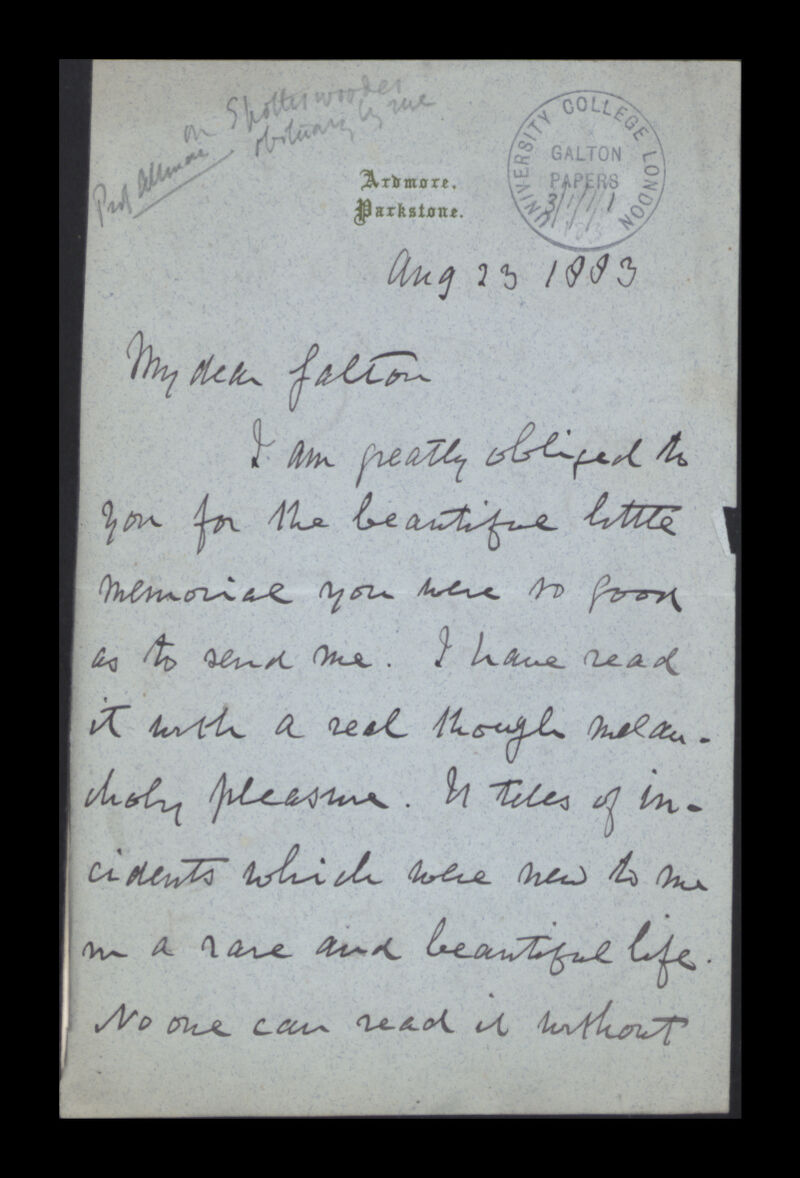 Prof Allman
on Spottiswoodes
obituary by me
UNIVERSITY COLLEGE LONDON
GALTON
PAPERS
Ardmore.
Parkstone.
Aug 23 1883
My dear Galton
I am greatly obliged to
you for the beautiful little
memorial you were so good
as to send me. I have read
it with a real though melan-
choly pleasure. It tells of in-
cidents which were new to me
in a rare and beautiful life.
No one can read it without